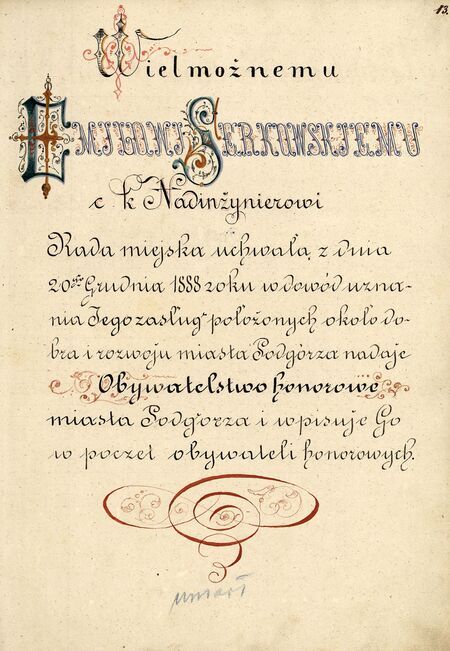 13.
Wielmożnemu
EMILOWI SERKOWSKIEMU
c k Nadinżynierowi
Rada miejska uchwałą z dnia
20go Grudnia 1888 roku w dowód uzna-
nia Jego zasług położonych około do-
bra i rozwoju miasta Podgórza nadaje
Obywatelstwo honorowe
miasta Podgórza i wpisuje Go
w poczet obywateli honorowych.
umarł